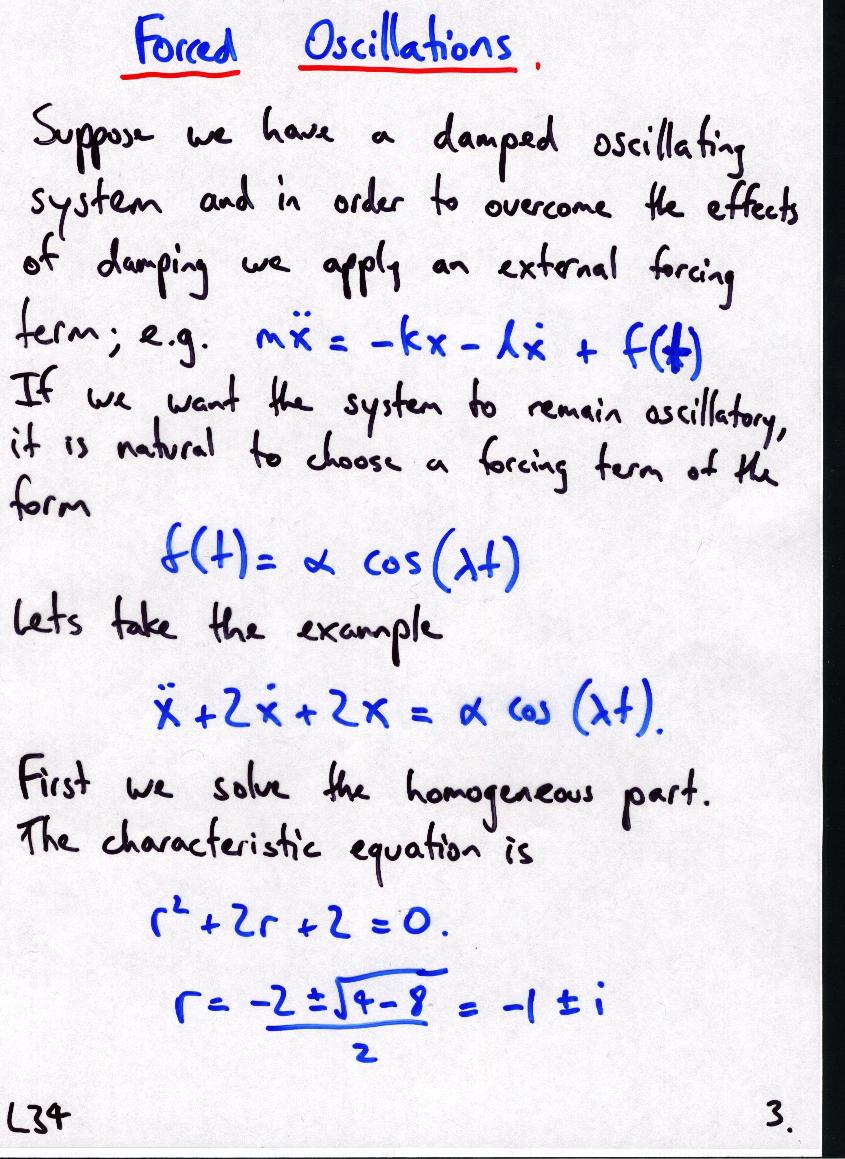 Forced Oscillations.
Suppose we have a damped oscillating
system and in order to overcome the effects
of damping we apply an external forcing
term; e.g. mẍ = -kx - λẋ + f(t)
If we want the system to remain oscillatory,
it is natural to choose a forcing term of the
form
f(t) = α cos(λt)
Lets take the example
ẍ + 2ẋ + 2x = α cos (λt).
First we solve the homogeneous part.
The characteristic equation is
r² + 2r + 2 = 0.
r = -2 ± √4 - 8 = -1 ± i
2
L34 3.